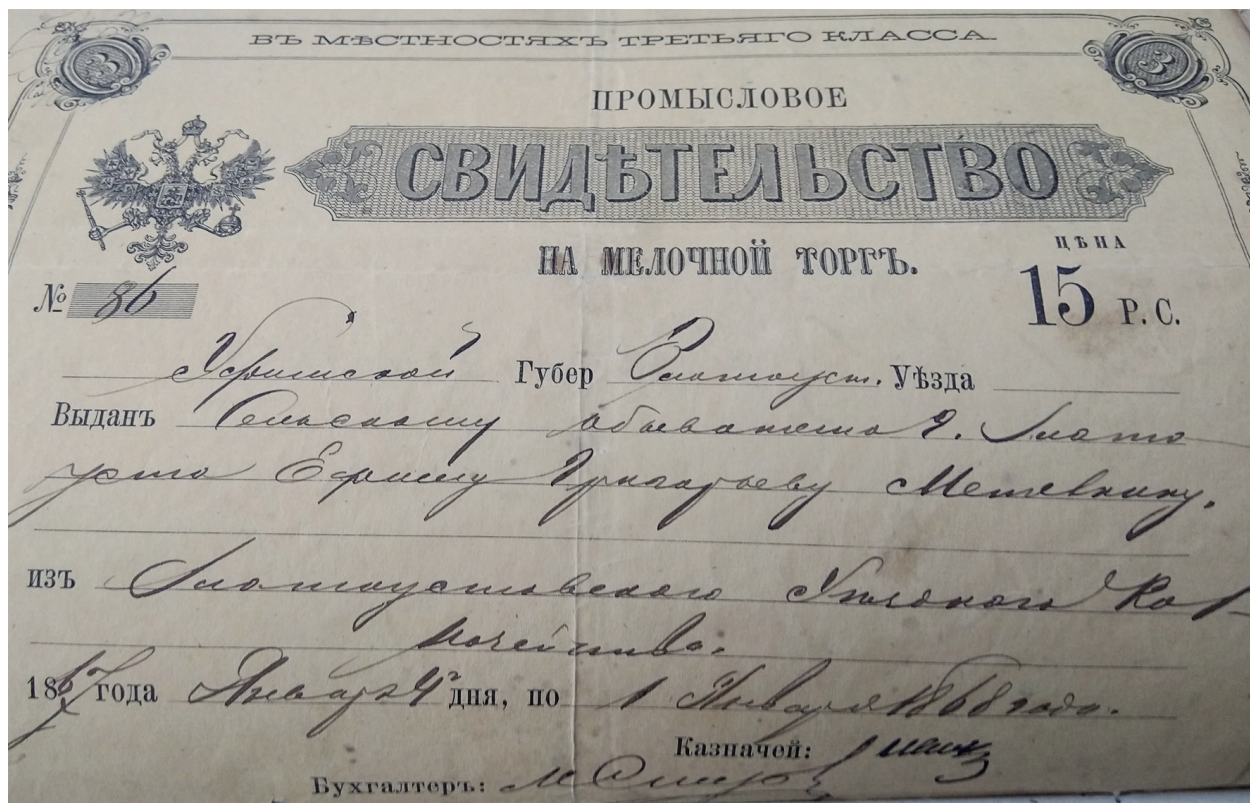 ВЪ МѢСТНОСТЯХЪ ТРЕТЬЯГО КЛАССА.
3
3
ПРОМЫСЛОВОЕ
СВИДѢТЕЛЬСТВО
НА МЕЛОЧНОЙ ТОРГЪ.
ЦѢНА
15 Р. С.
№ 86
Уфимской Губер Златоуст. Уѣзда
Выданъ Сельскому обывателю г. Злато
уста Ефиму Григорьеву
изъ Златоустовского Уѣздного Каз
начейства.
1867 года Января 4го дня, по 1 Января 1868 года.
Казначей:
Бухгалтеръ: